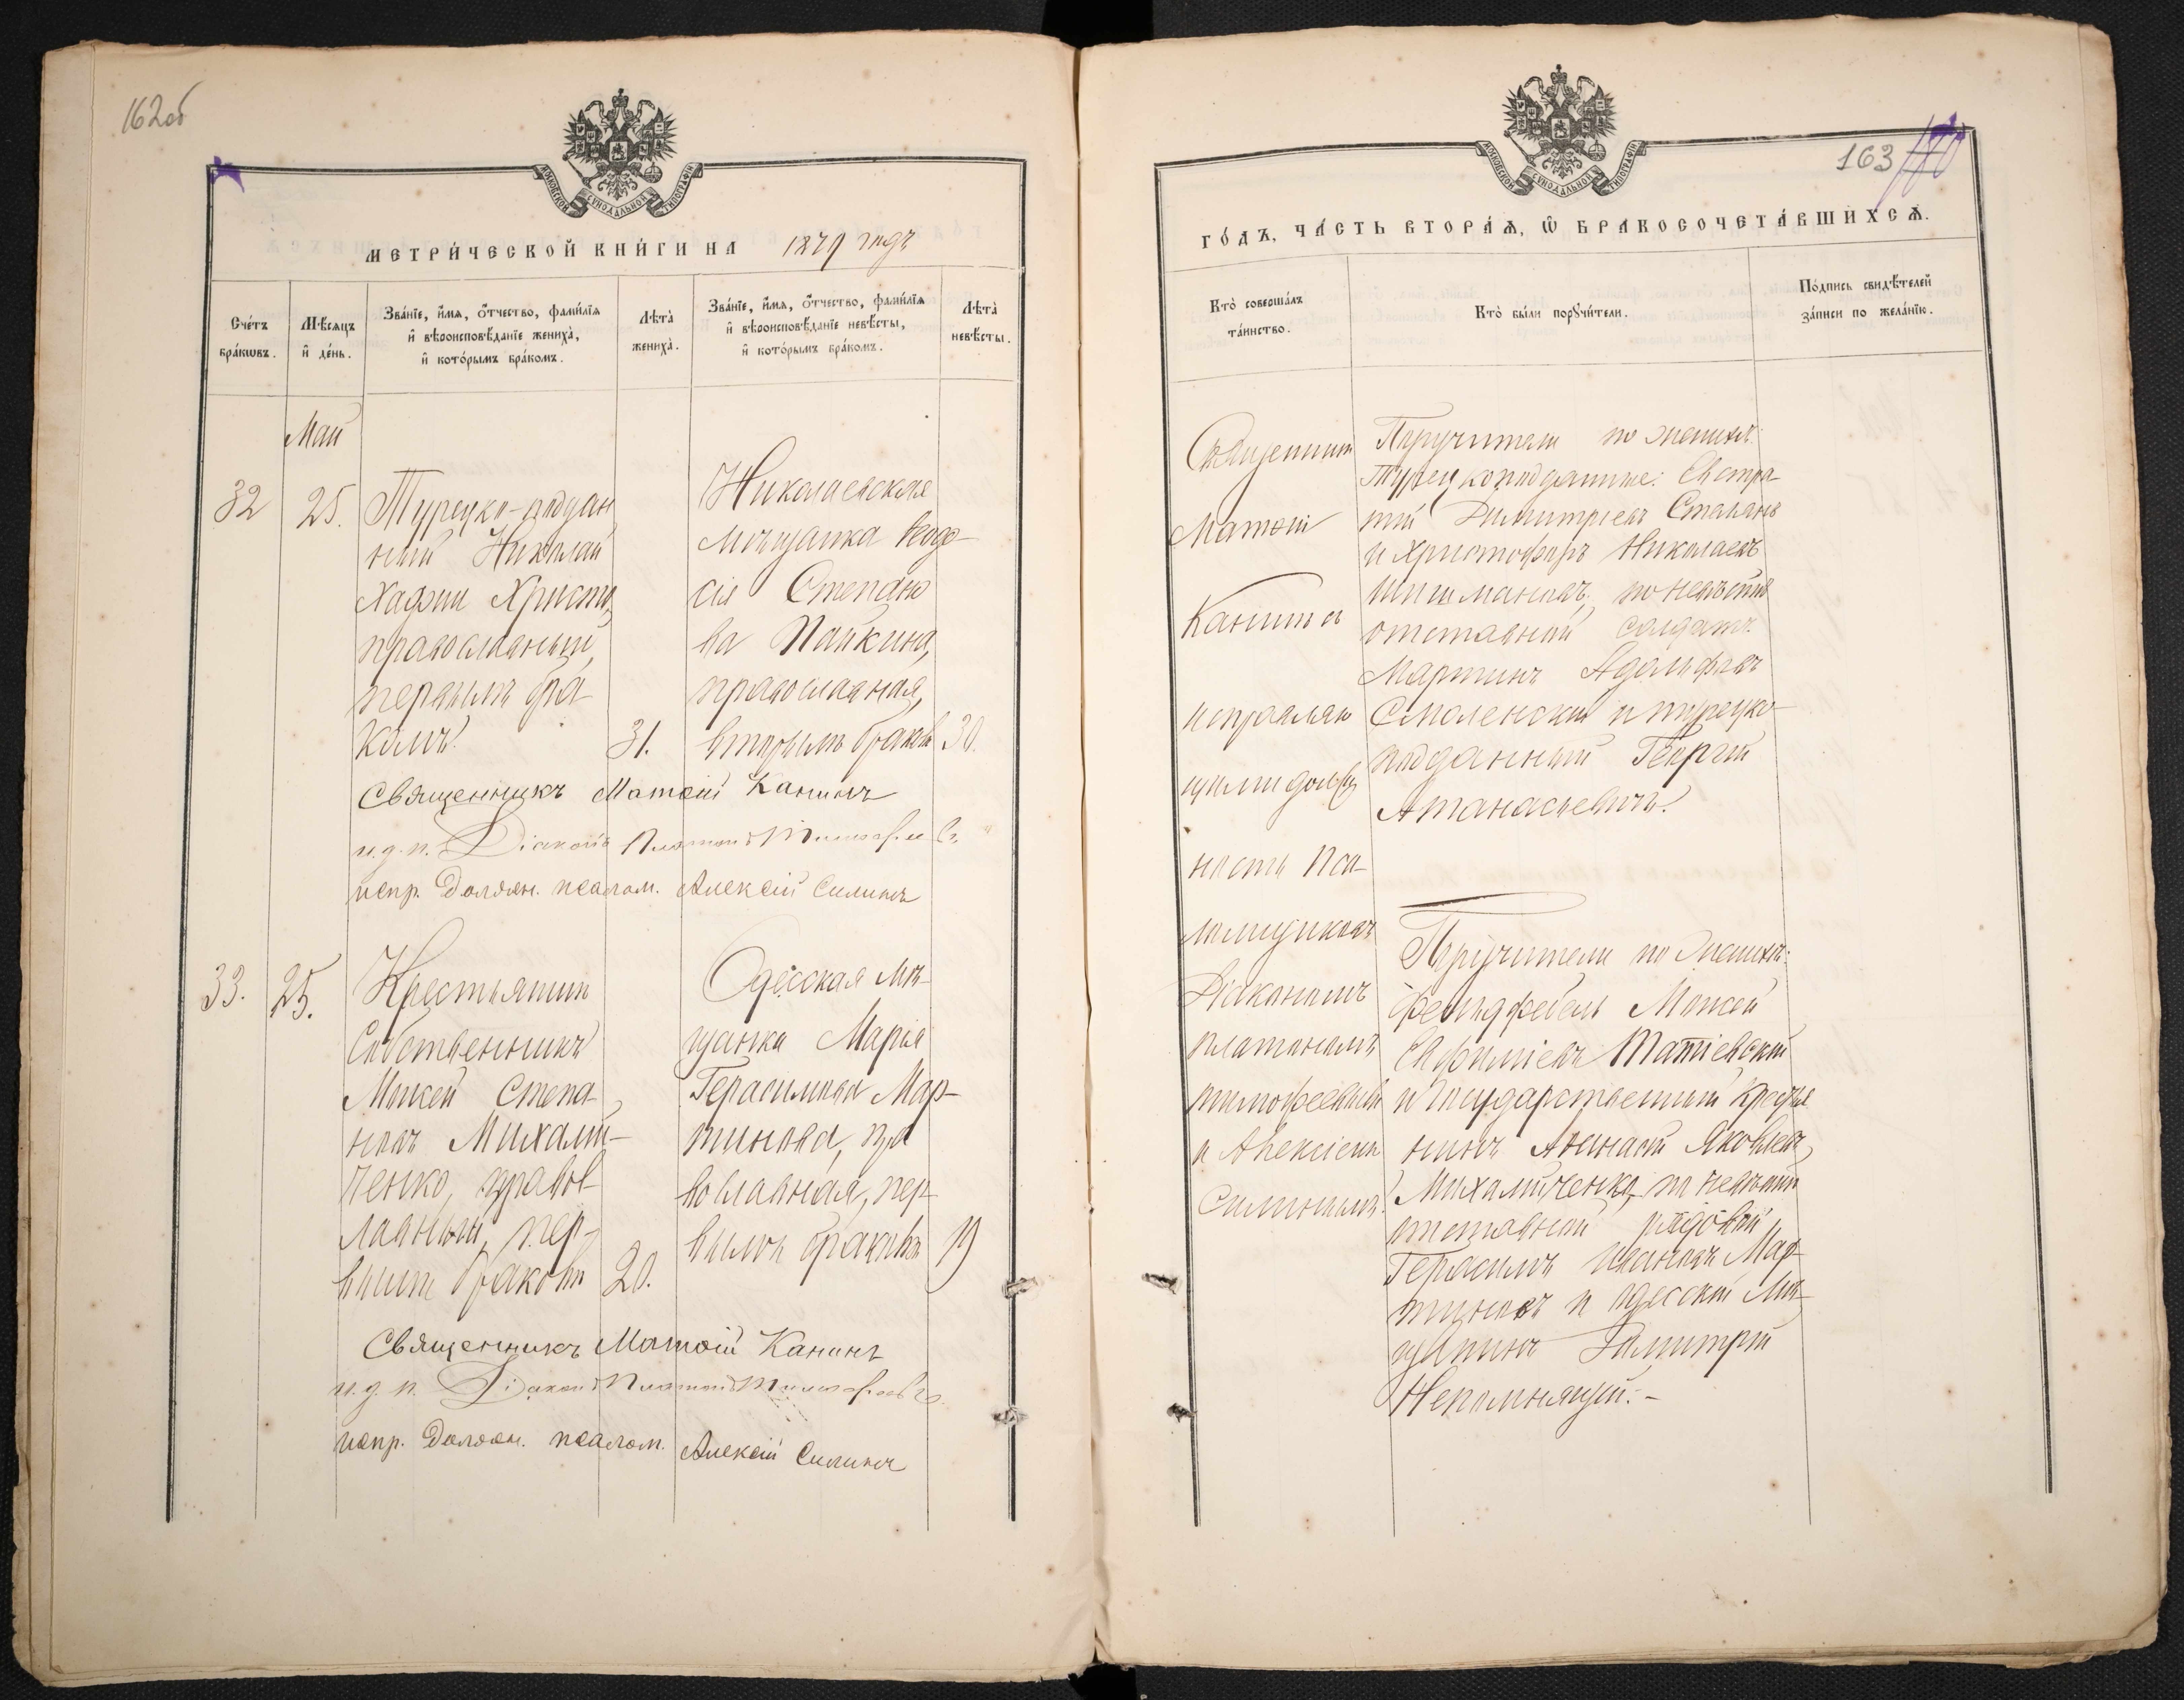 162об
МОСКОВСКОЙ СѴНОДАЛЬНОЙ ТИПОГРАФІИ
МЕТРИ́ЧЕСКОЙ КНИ́ГИ НА 1879 годъ
Сче́тъ бра́кѡвъ.
Мѣ́сяцъ и҆ де́нь.
Зва́нїе, и҆́мѧ, ѻ҆́тчество, фами́лїѧ и҆ вѣроисповѣ́данїе жениха̀, и҆ кото́рымъ бра́комъ.
Лѣ́та̀ жениха̀.
Зва́нїе, и҆́мѧ, ѻ҆́тчество, фами́лїѧ и҆ вѣроисповѣ́данїе невѣ́сты, и҆ кото́рымъ бра́комъ.
Лѣ́та̀ невѣ́сты.
Май
32
25.
Турецко-поддан
ный Николай
Хаджи Христо,
православный,
первымъ бра-
комъ.
31.
Николаевская
мѣщанка Ѳеодо-
сія Степано
ва Пайкина,
православная,
вторымъ бракомъ
30.
Священникъ Матѳій Канинъ
и.д.п. Діаконъ Платонъ Тимофеевъ
испр. должн. псалом. Алексій Силинъ
33.
25.
Крестьянин
Собственникъ
Моисей Степа-
новъ Михали-
ченко, правос
лавный, пер-
вымъ бракомъ
20.
Одесская мѣ-
щанка Марія
Герасимова Мар-
тинова, пра
вославная, пер-
вымъ бракомъ
19
Священникъ Матѳій Канинъ
и.д.п. Діаконъ Платонъ Тимофеевъ
испр. должн. псалом. Алексій Силинъ
163
МОСКОВСКОЙ СѴНОДАЛЬНОЙ ТИПОГРАФІИ
ГО́ДЪ, ЧА́СТЬ ВТОРА́Ѧ, Ѽ БРАКОСОЧЕТА́ВШИХСѦ.
Кто̀ соверша́лъ та́инство.
Кто̀ бы́ли порꙋчи́тели.
По́дпись свидѣ́телей за́писи по жела́нїю.
Священник
Матѳій
Канинъ съ
исправляю
щими долж
ность Пса-
ломщиковъ
Діакономъ
Платономъ
Тимофеевымъ
и Алексіемъ
Силинымъ.
Поручители по женихѣ:
Турецкоподданные: Евстра-
тій Димитріевъ Стальянъ
и Христофоръ Николаевъ
Шишмановъ; по невѣстѣ
отставной солдатъ
Мартинъ Адольфовъ
Смоленский и турецко-
подданный Георгій
Атанасьевичъ.
Поручители по женихѣ:
фельдфебель Моисей
Евфиміевъ Матіевский
и Государственный крестья
нинъ Аѳанасій Яковлевъ
Михаличенко, по невѣстѣ
отставной рядовой
Герасимъ Ивановъ Мар-
тиновъ и одесский мѣ-
щанинъ Димитрій
Непомнящій.-